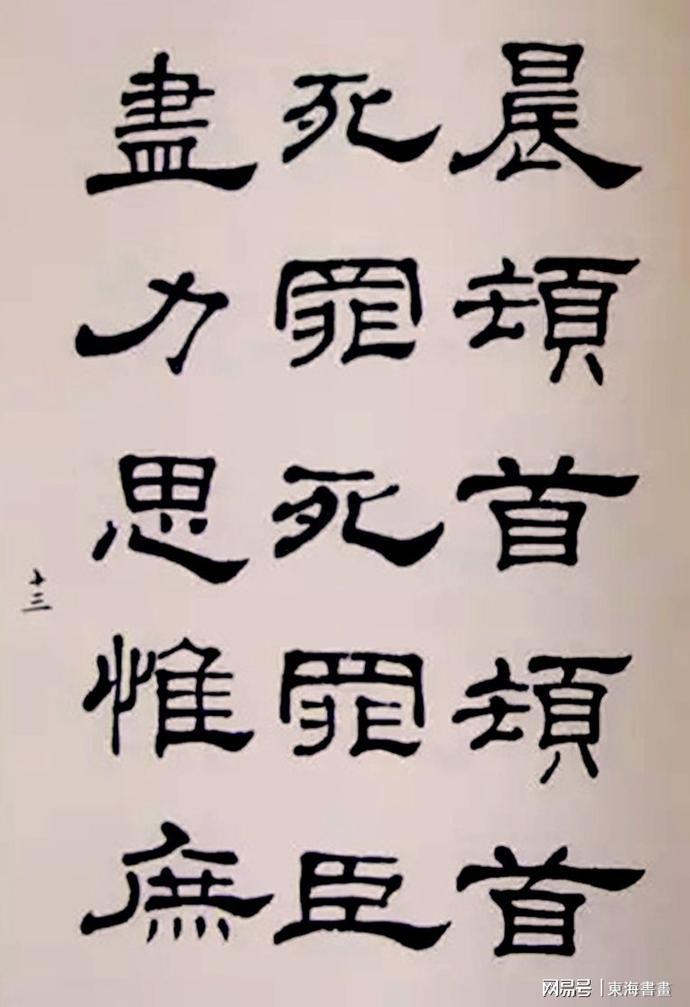 晨頓首頓首
死罪死罪臣
盡力思惟庶
十三
网易号 | 東海書畫